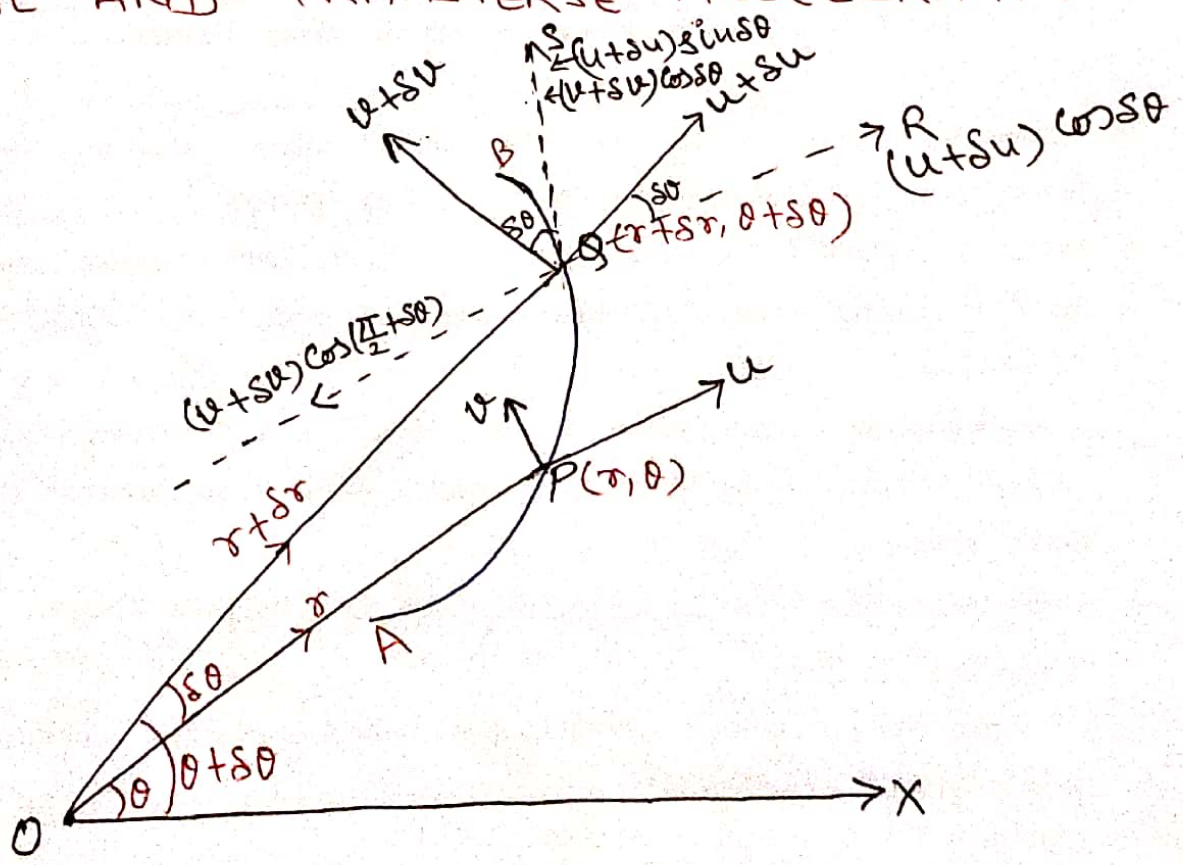 AND
S
(u+δu)sinδθ
+(v+δv)cosδθ
v+δv
u+δu
R
(u+δu) cosδθ
B
δθ
δθ
Q(r+δr, θ+δθ)
(v+δv)cos(π/2+δθ)
v
u
P(r, θ)
r+δr
r
A
δθ
θ+δθ
θ
O
X